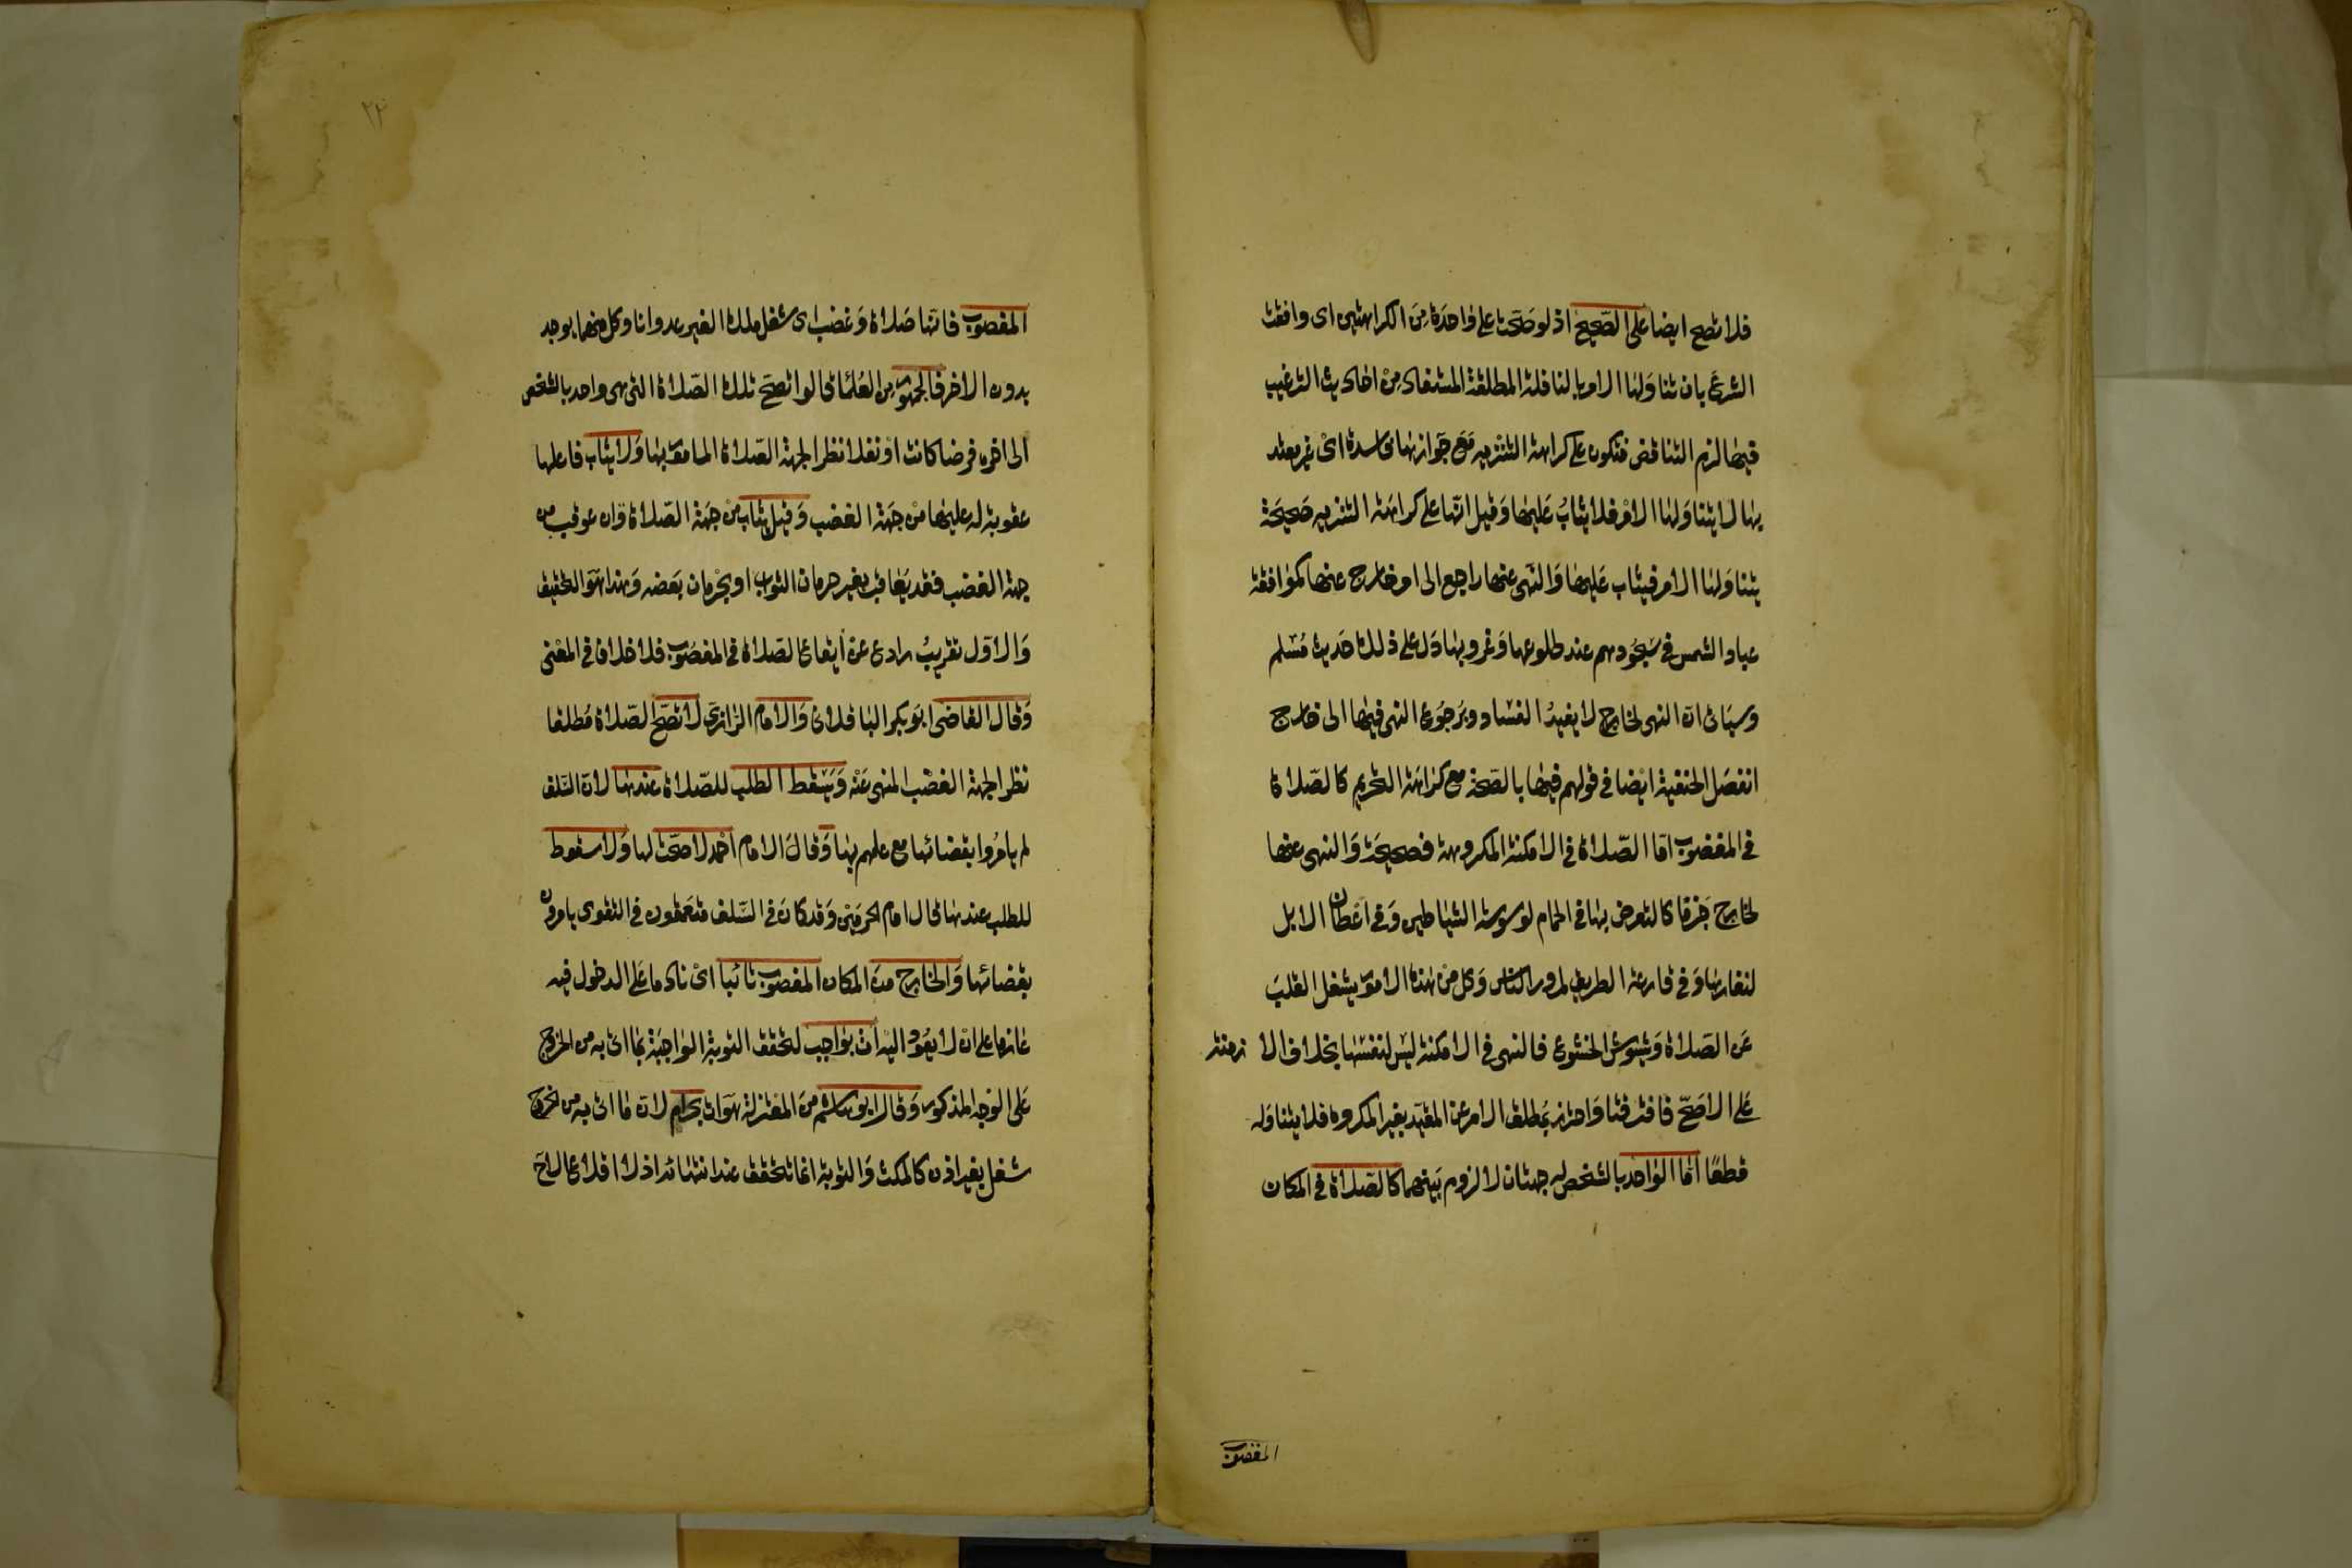 فلا تصح ايضا على الصحيح اذ لو صحت على واحدة من الكراهتين اى وافقت
الشرع بان تناولها الامر بالنافلة المطلقة المستفاد من احاديث الترغيب
فيها لزم التناقض فتكون على كراهة التنزيه مع جوازها فاسدة اى غير معتد
بها لا يتناولها الامر فلا يثاب عليها وقيل انها على كراهة التنزيه صحيحة
يتناولها الامر فيثاب عليها والنهى عنها راجع الى امر خارج عنها كموافقة
عباد الشمس فى سجودهم عند طلوعها وغروبها دل على ذلك حديث مسلم
وسياتى ان النهى لخارج لا يفيد الفساد وبرجوع النهى فيها الى خارج
انفصل الحنفية ايضا فى قولهم فيها بالصحة مع كراهة التحريم كالصلاة
فى المغصوب اما الصلاة فى الامكنة المكروهة فصحيحة والنهى عنها
لخارج جزما كالتعرض بها فى الحمام لوسوسة الشياطين وفى اعطان الابل
لنفارها وفى قارعة الطريق لمرور الناس وكل من هذه الامور يشغل القلب
عن الصلاة ويشوش الخشوع فالنهى فى الامكنة ليس لنفسها بخلاف الا زمنة
على الاصح فافترقتا واحترز بمطلق الامر عن المقيد بغير المكروه فلا يتناوله
قطعا اما الواحد بالشخص له جهتان لا لزوم بينهما كالصلاة فى المكان
المغصوب
٢٢
المغصوب فانها صلاة وغصب اى شغل ملك الغير عدوانا وكل منهما يوجد
بدون الاخر فالجمهور من العلماء قالوا تصح تلك الصلاة التى هى واحد بالشخص
الى اخره فرضا كانت او نفلا نظرا لجهة الصلاة المامور بها ولا يثاب فاعلها
عقوبة له عليها من جهة الغصب وقيل يثاب من جهة الصلاة وان عوقب من
جهة الغصب فقد يعاقب بغير حرمان الثواب او بحرمان بعضه وهذا هو التحقيق
والاول تقريب رادع عن ايقاع الصلاة فى المغصوب فلا خلاف فى المعنى
وقال القاضى ابو بكر الباقلانى والامام الرازى لا تصح الصلاة مطلقا
نظرا لجهة الغصب المنهى عنه ويسقط الطلب للصلاة عندها لان السلف
لم يامروا بقضائها مع علمهم بها وقال الامام احمد لا صحة لها ولا سقوط
للطلب عندها قال امام الحرمين وقد كان فى السلف متعمقون فى التقوى يامرون
بقضائها والخارج من المكان المغصوب تائبا اى نادما على الدخول فيه
عازما على ان لا يعود اليه ات بواجب لتحقق التوبة الواجبة بما اتى به من الخروج
على الوجه المذكور وقال ابو هاشم من المعتزلة هو ات بحرام لان ما اتى به من الخروج
شغل بغير اذن كالمكث والتوبة انما تتحقق عند انتهائه اذ لا اقلاع الا ح